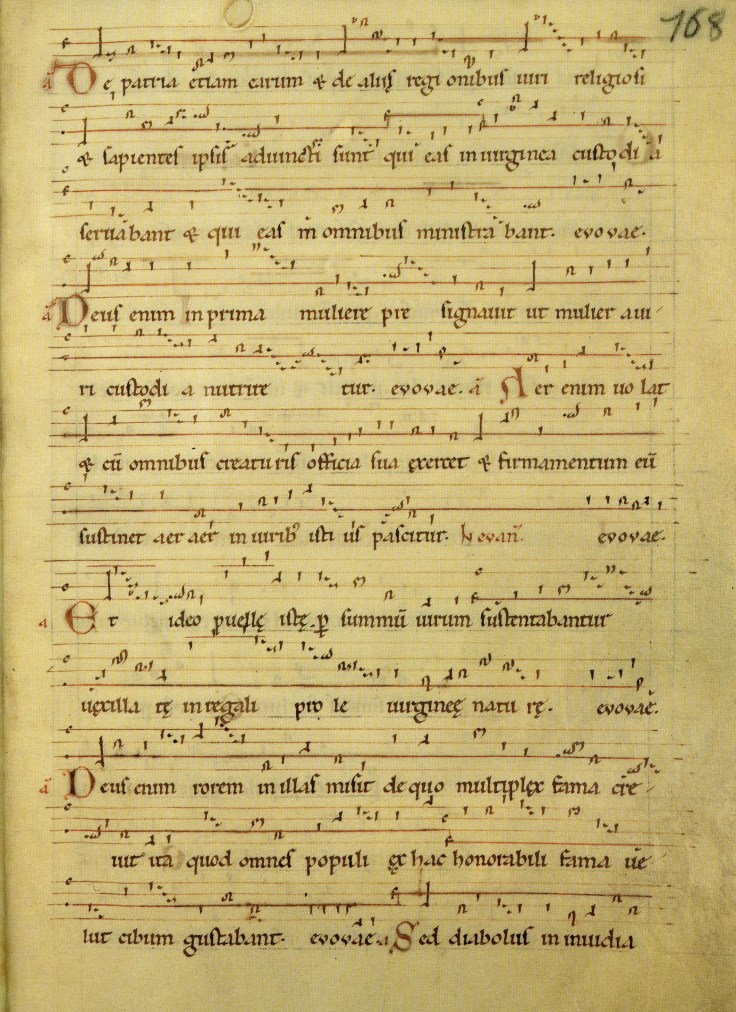 168
a De patria etiam earum & de aliis regionibus uiri religiosi
& sapientes ipsis adiuncti sunt qui eas in uirginea custodia
seruabant & qui eas in omnibus ministrabant. evovae.
a Deus enim in prima muliere presignauit ut mulier a ui-
ri custodia nutriretur. evovae. a Aer enim uolat
& cū omnibus creaturis officia sua exercet & firmamentum eū
sustinet aer aer in uirib' istius pascitur. evovae.
a Et ideo puellę istę p summū uirum sustentabantur
uexillatę in regali prole uirgineę naturę. evovae.
a Deus enim rorem in illas misit de quo multiplex fama cre-
uit ita quod omnes populi ex hac honorabili fama ue-
lut cibum gustabant. evovae. a Sed diabolus in inuidia